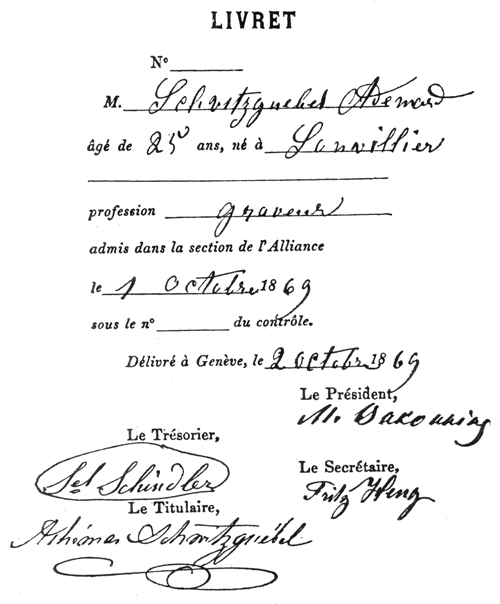 LIVRET
N°
M. Schvitzguebel Adémard
âgé de 25 ans, né à Sonvillier
profession graveur
admis dans la section de l'Alliance
le 1 Octobre 1869
sous le n° du contrôle.
Délivré à Genève, le 2 octobre 1869
Le Président,
M. Bakounine
Le Trésorier,
Le Secrétaire,
Schindler
Fritz Heng
Le Titulaire,
Schwitzguébel